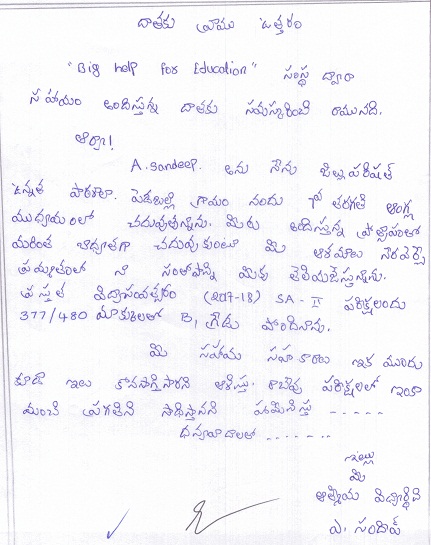 దాతకు వ్రాయు ఉత్తరం
"Big help for Education" సంస్థ ద్వారా
సహాయం అందిస్తున్న దాతకు నమస్కరించి రాయునది.
ఆర్యా!
A. Sandeep. అను నేను జిల్లా పరిషత్
ఉన్నత పాఠశాల. పెదజుల్లి గ్రామం నందు 7వ తరగతి ఆంగ్ల
మధ్యమంలో చదువుతున్నాను. మీరు అందిస్తున్న ప్రోత్సాహంతో
మరింత బాధ్యతగా చదువుకుంటూ మీ ఆశయాలు నెరవేర్చే
ప్రయత్నంలో నా సంతోషాన్ని మీకు తెలియజేస్తున్నాను.
ప్రస్తుత విద్యాసంవత్సరం (2017-18) SA - II పరీక్షలందు
377/480 మార్కులతో B1 గ్రేడు పొందినాను.
మీ సహాయ సహకారాలు ఇక ముందు
కూడా ఇలు కొనసాగిస్తారని ఆశిస్తూ. రాబోవు పరీక్షలలో ఇంకా
మంచి ప్రగతిని సాధిస్తానని హామీనిస్తూ -----
ధన్యవాదాలతో -------
ఇట్లు
మీ
ఆత్మీయ విద్యార్థి
ఎ. సందీప్